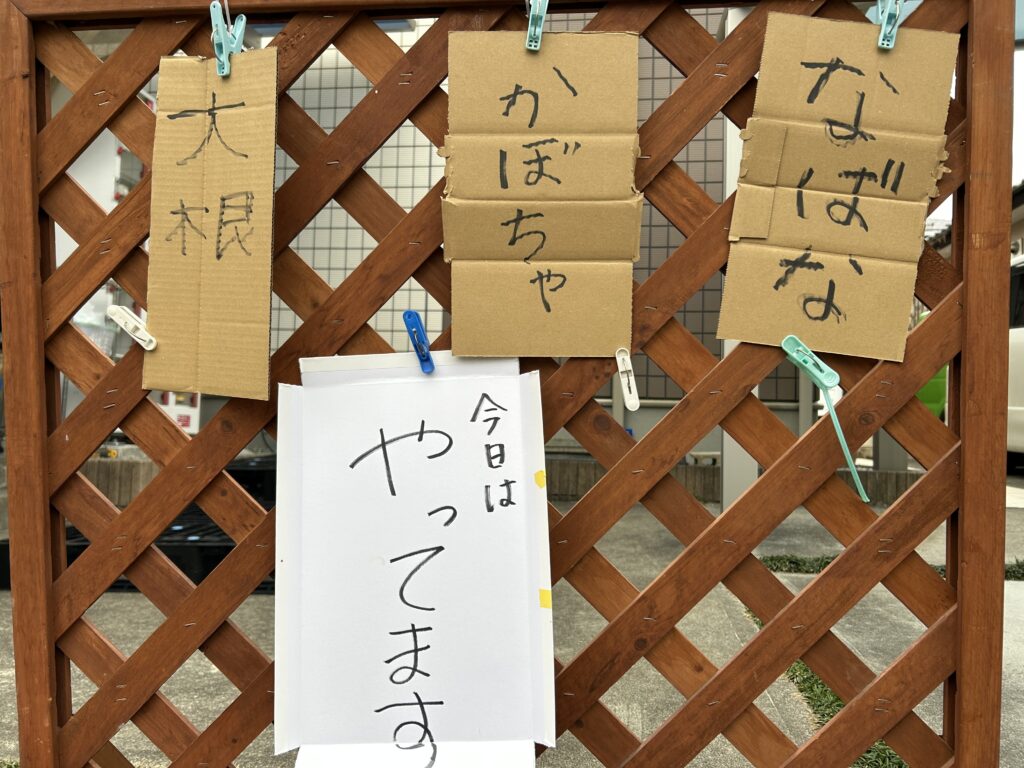 なばな
かぼちゃ
大根
今日は
やってます